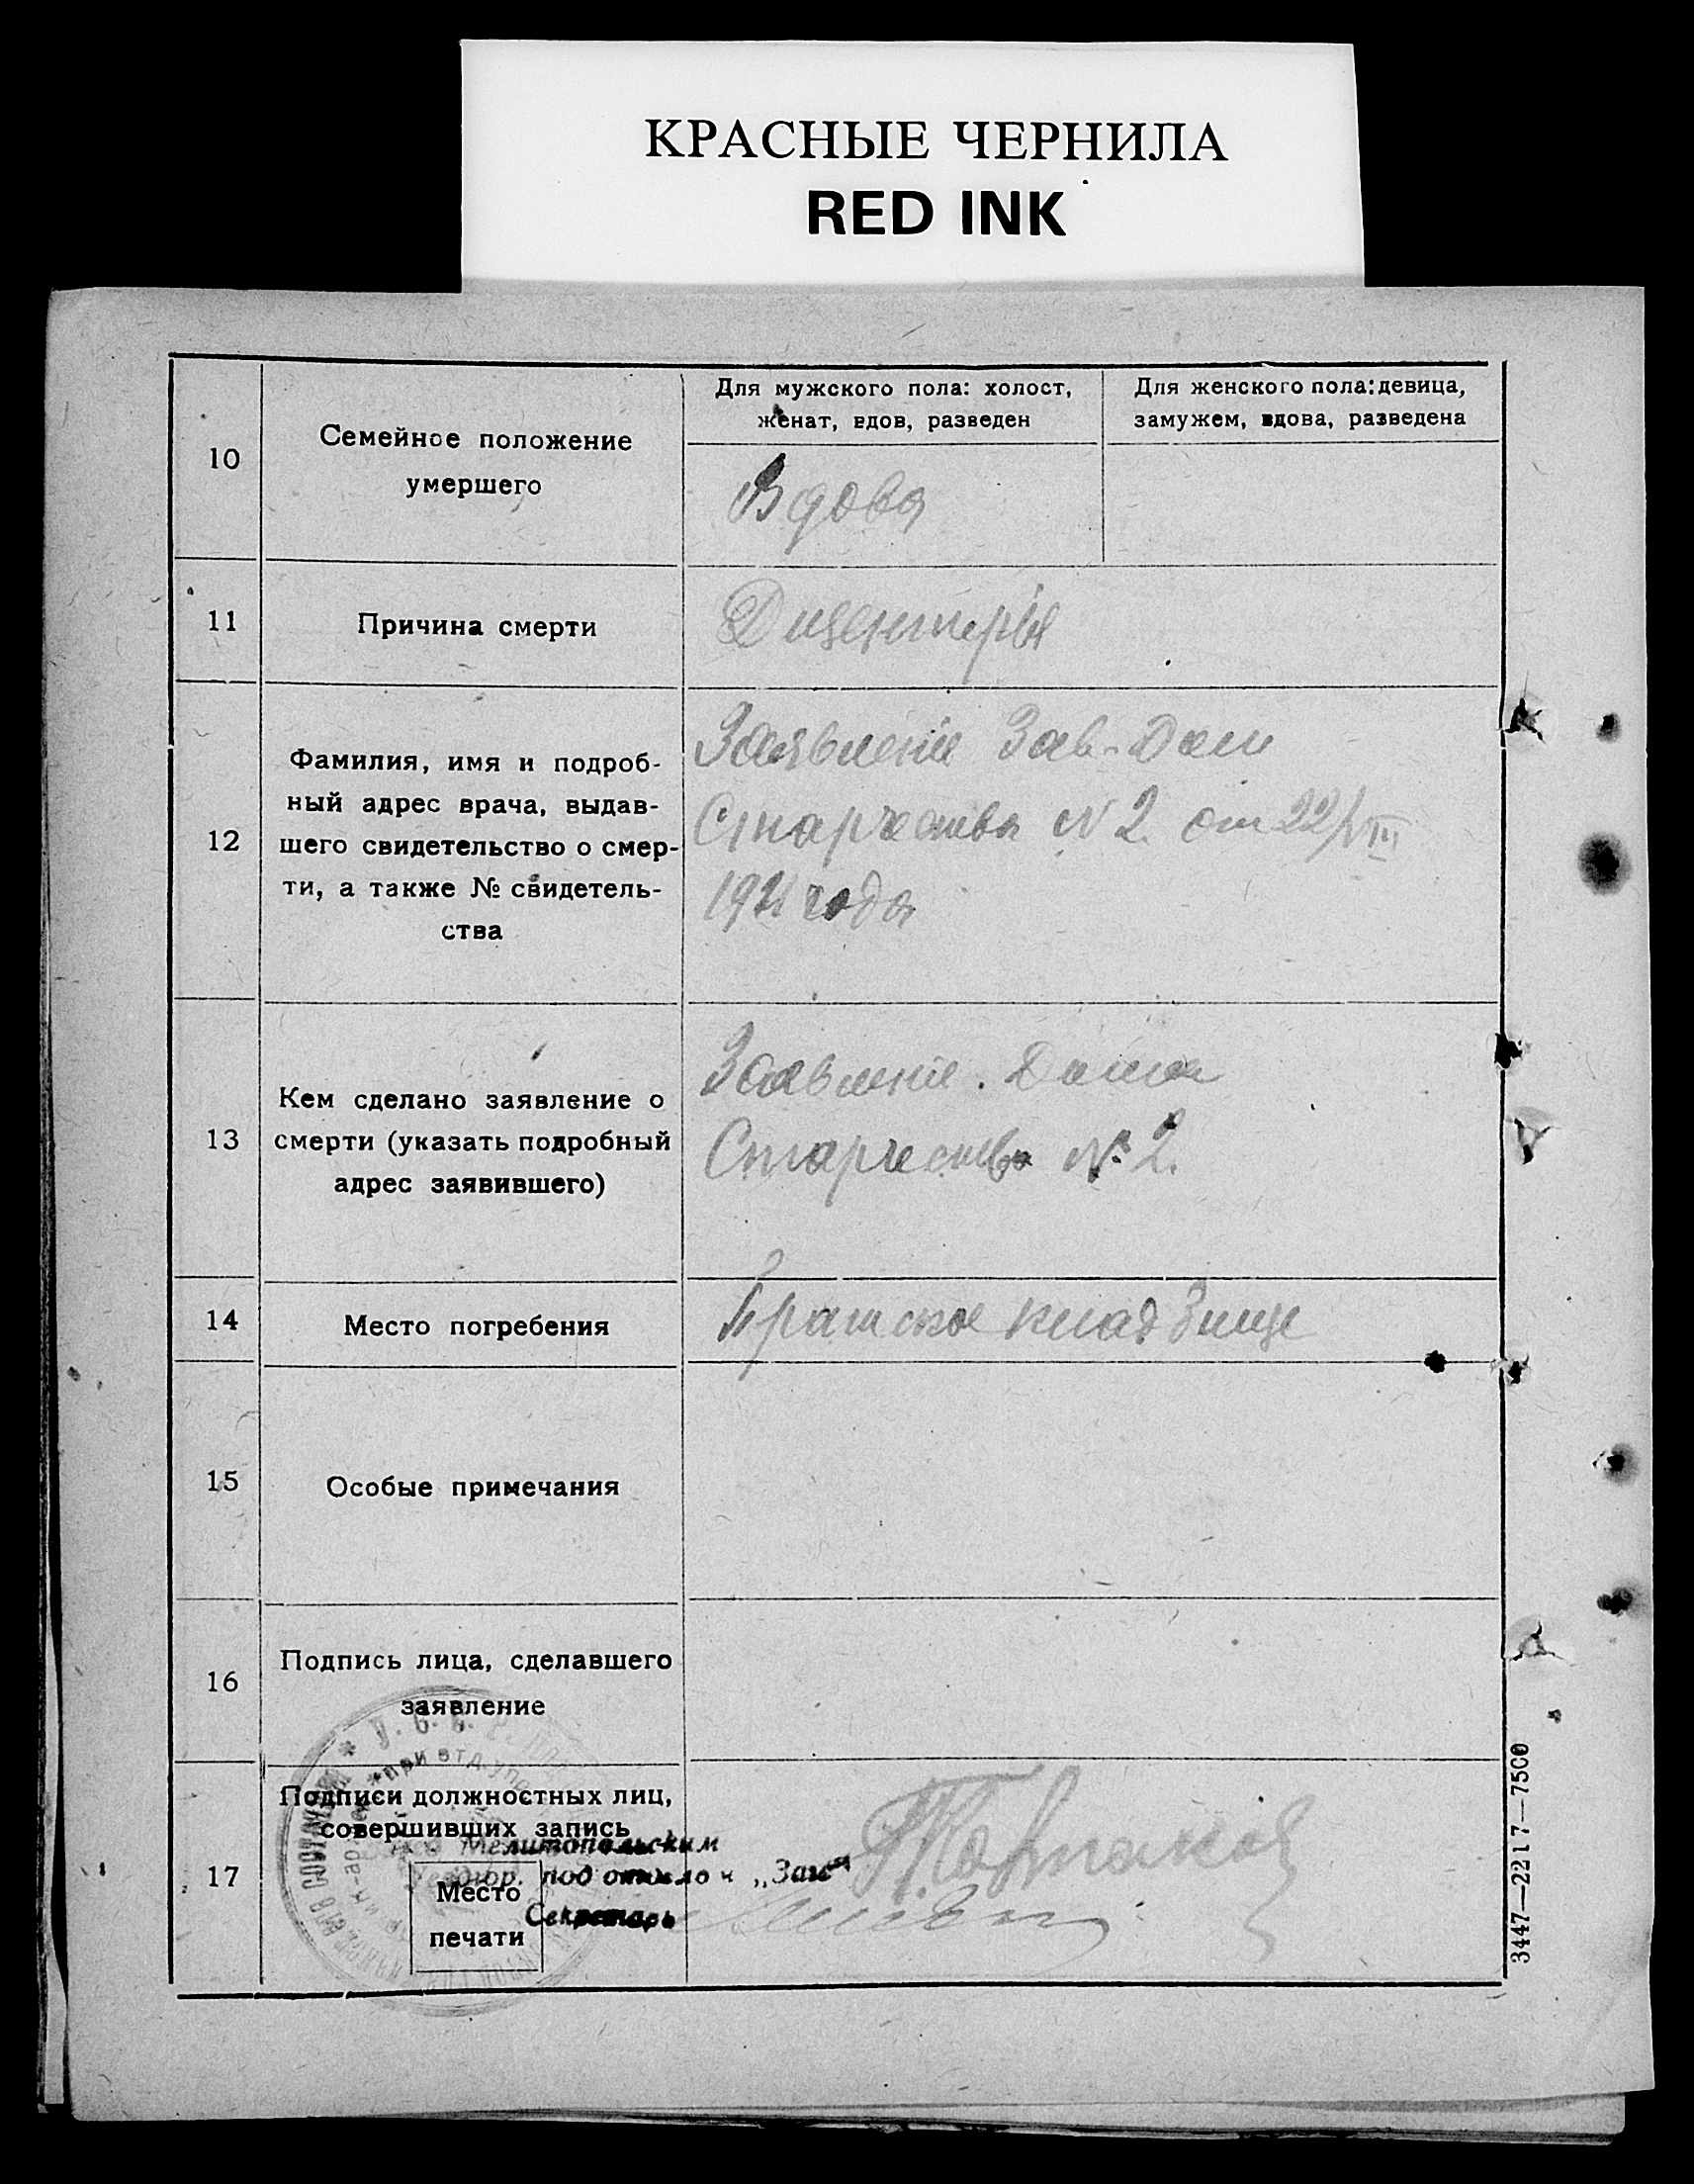 КРАСНЫЕ ЧЕРНИЛА
RED INK
10
Семейное положение
умершего
Для мужского пола: холост,
женат, вдов, разведен
Для женского пола: девица,
замужем, вдова, разведена
Вдова
11
Причина смерти
Дизентерія
12
Фамилия, имя и подроб-
ный адрес врача, выдав-
шего свидетельство о смер-
ти, а также № свидетель-
ства
Заявленіе Зав-Дом
Старчества N 2. от 22/VIII
1921 года
13
Кем сделано заявление о
смерти (указать подробный
адрес заявившего)
Заявленіе. Дома
Старчества №. 2.
14
Место погребения
Братское кладбище
15
Особые примечания
16
Подпись лица, сделавшего
заявление
17
Подписи должностных лиц,
совершивших запись
Место
печати
Мелитопольским
под отдело „Загс“
Секретарь
3447—2217—7500